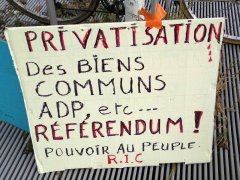 PRIVATISATION
Des BIENS
COMMUNS
ADP, etc...
RÉFÉRENDUM !
POUVOIR AU PEUPLE.
R.I.C